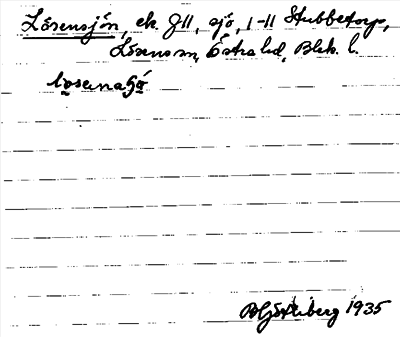 Lösensjön, ek. J 11, sjö, 1-11 Stubbetorp,
Lösens sn, Östra hd, Blek. l.
losenasjö
1935